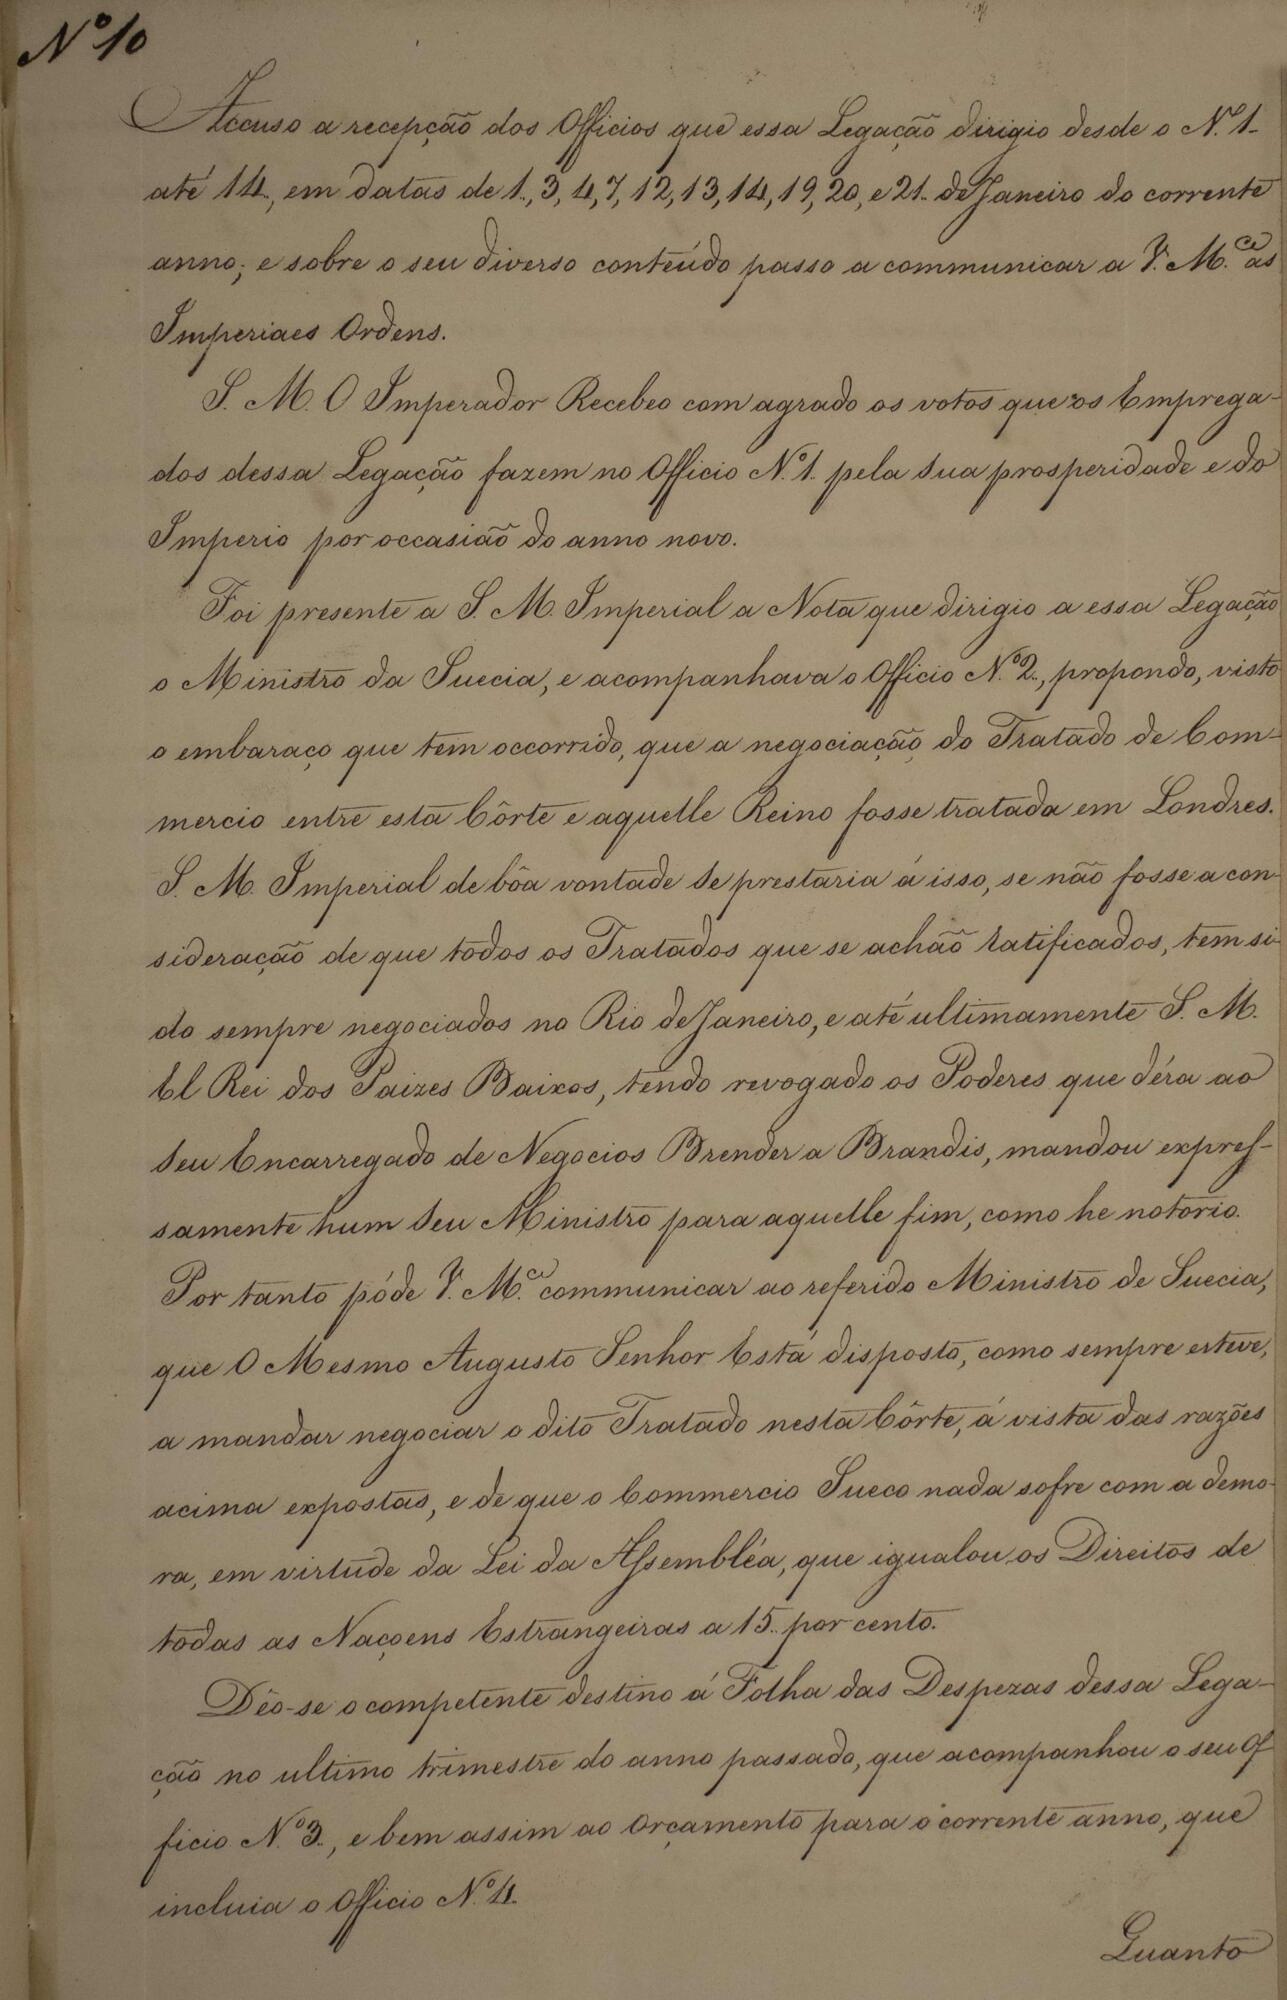 Nº 10
Accuso a recepção dos Officios que essa Legação dirigio desde o N.º 1.
até 14., em datas de 1., 3, 4, 7, 12, 13, 14, 19, 20, e 21. de Janeiro do corrente
anno; e sobre o seu diverso conteúdo passo a communicar a V. M.ce as
Imperiaes Ordens.
S. M. O Imperador Recebeo com agrado os votos que os Emprega-
dos dessa Legação fazem no Officio N.º 1. pela Sua prosperidade e do
Imperio por occasião do anno novo.
Foi presente a S. M. Imperial a Nota que dirigio a essa Legação
o Ministro da Suecia, e acompanhava o Officio N.º 2., propondo, visto
o embaraço que tem occorrido, que a negociação do Tratado de Com-
mercio entre esta Côrte e aquelle Reino fosse tratada em Londres.
S. M. Imperial de bôa vontade Se prestaria á isso, se não fosse a con-
sideração de que todos os Tratados que se achão ratificados, tem si-
do sempre negociados no Rio de Janeiro, e até ultimamente S. M.
El Rei dos Paizes Baixos, tendo revogado os Poderes que déra ao
Seu Encarregado de Negocios Brender a Brandis, mandou expres-
samente hum Seu Ministro para aquelle fim, como he notorio.
Por tanto póde V. M.ce communicar ao referido Ministro de Suecia,
que O Mesmo Augusto Senhor Está disposto, como sempre esteve,
a mandar negociar o dito Tratado nesta Côrte, á vista das razões
acima expostas, e de que o Commercio Sueco nada sofre com a demo-
ra, em virtude da Lei da Assembléa, que igualou os Direitos de
todas as Naçoens Estrangeiras a 15. por cento.
Dêo-se o competente destino á Folha das Despezas dessa Lega-
ção no ultimo trimestre do anno passado, que acompanhou o seu Of-
ficio N.º 3., e bem assim ao Orçamento para o corrente anno, que
incluia o Officio N.º 4.
Quanto